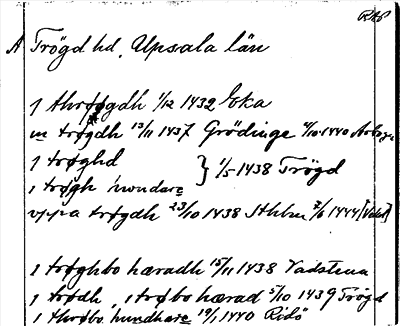 RAP
A Trögd hd, Upsala län
j thrøøgdh 1/12 1432 Eka
in trøgdh 13/11 1437 Grödinge 4/10 1440 Arboga
j trøghd } 1/5 1438 Trögd
i trøgh hwndare
vppa trøgdh 23/10 1438 Sthlm 2/6 1444
j trøghbo hæradh 15/11 1438 Vadstena
j trødh, i trøbo hærad 5/10 1439 Trögd
j thrøbo hundhare 19/1 1440 Risö